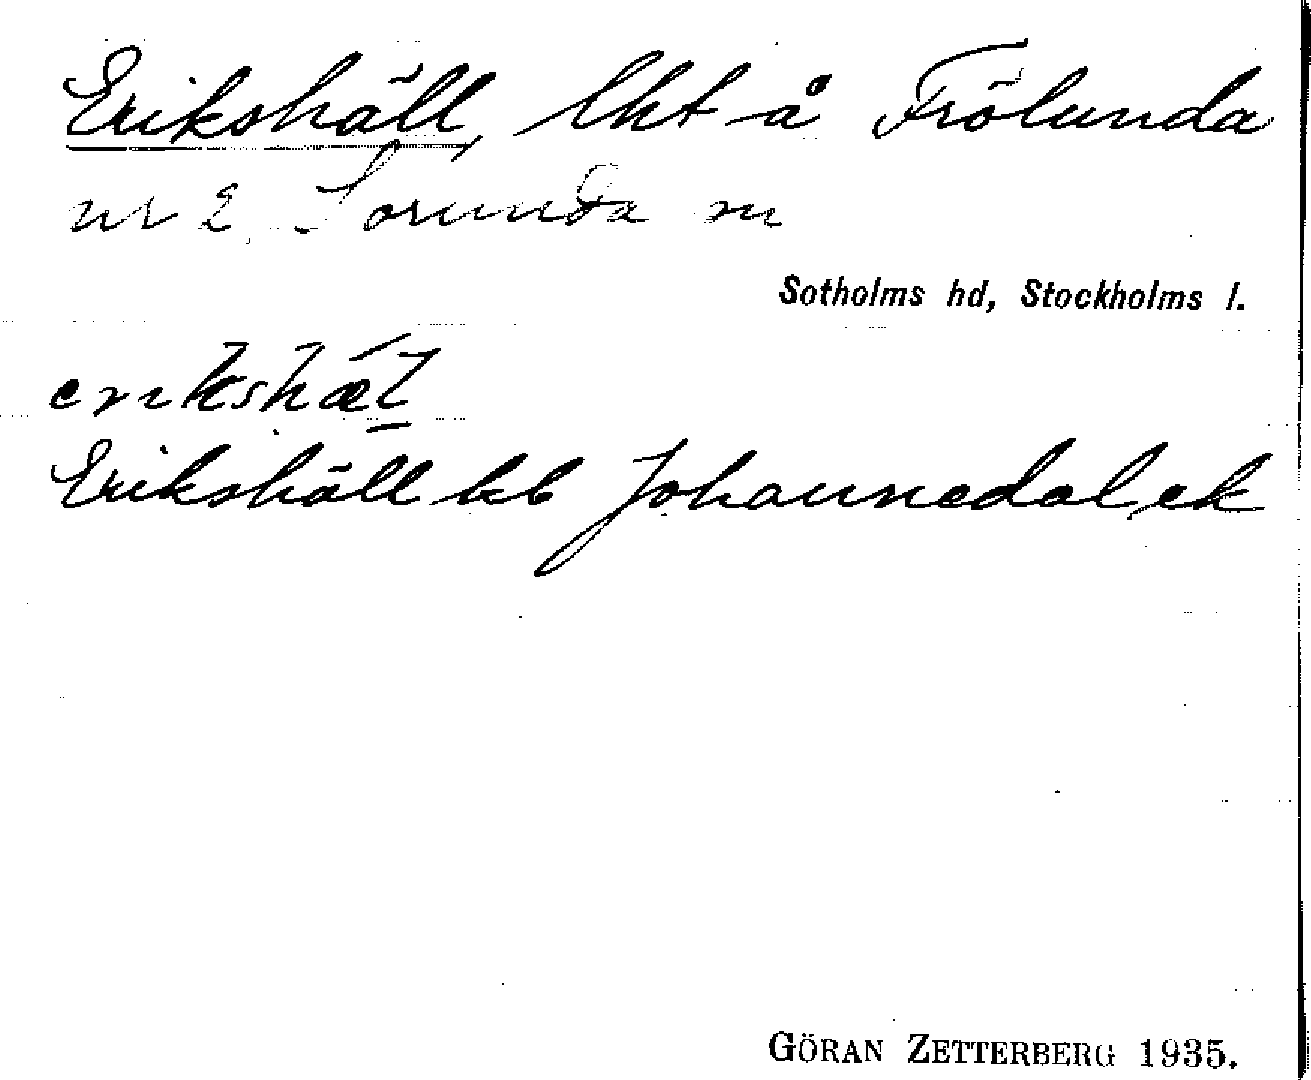 Erikshäll, lht å Frölunda
nr 2, Sorunda sn
Sotholms hd, Stockholms l.
erikshæ̀l
Erikshäll kb Johannedal, ek
GÖRAN ZETTERBERG 1935.